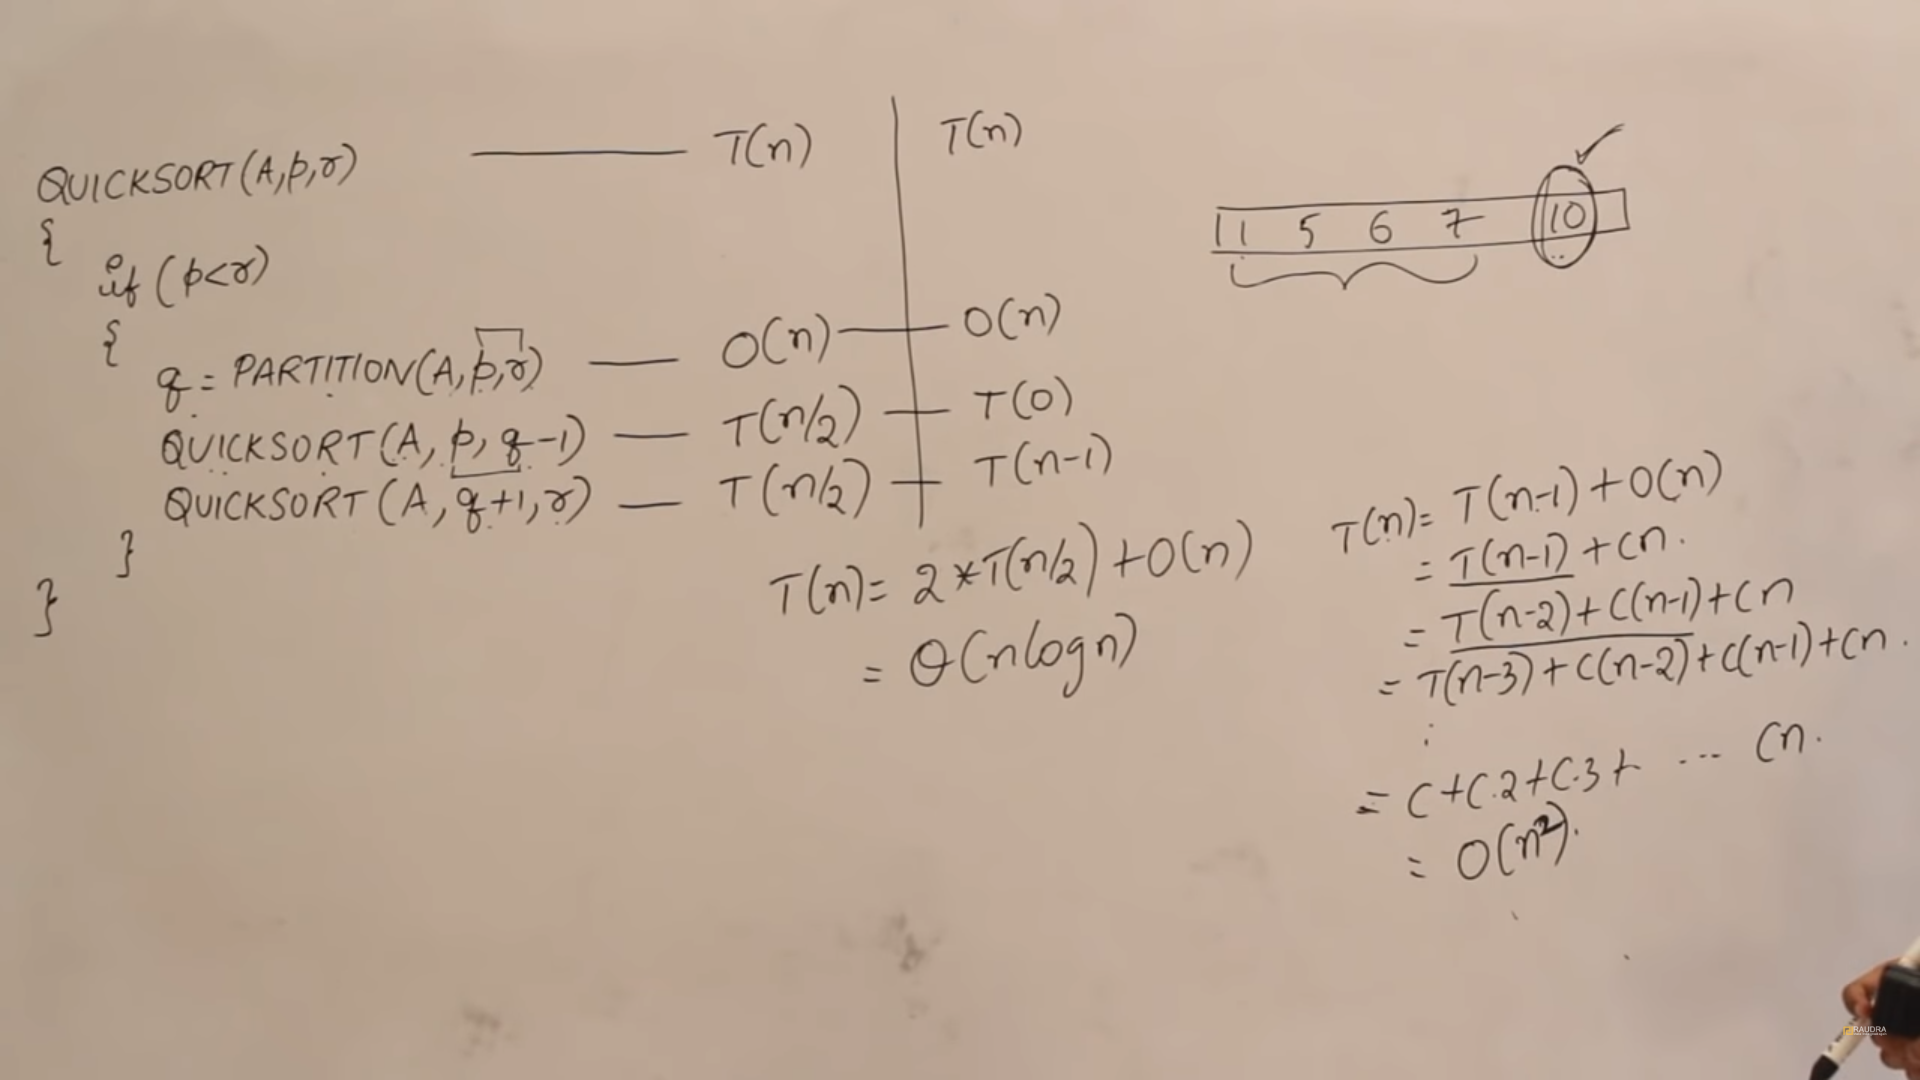 QUICKSORT(A,p,r) — T(n) T(n)
{
if (p<r)
{
q = PARTITION(A,p,r) — O(n) — O(n)
QUICKSORT(A, p, q-1) — T(n/2) — T(0)
QUICKSORT(A, q+1, r) — T(n/2) — T(n-1)
}
}
T(n) = 2*T(n/2)+O(n)
= θ(nlogn)
11 5 6 7 10
T(n) = T(n-1)+O(n)
= T(n-1)+cn.
= T(n-2)+c(n-1)+cn
= T(n-3)+c(n-2)+c(n-1)+cn.
:
= c+c.2+c.3+ ... cn.
= O(n²).
RAUDRA